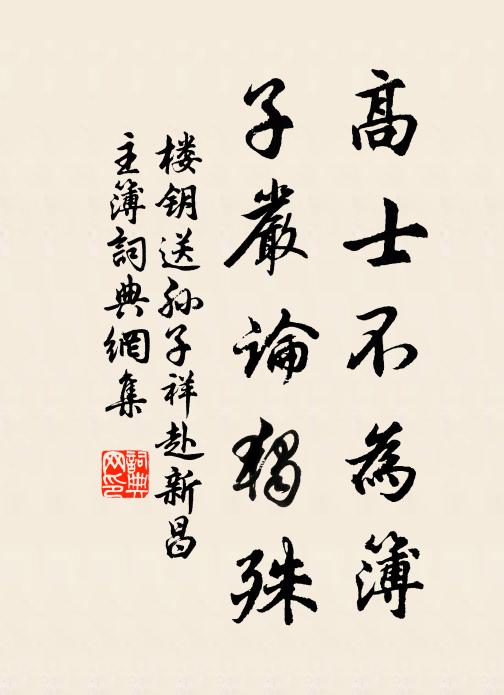 高士不為簿
子嚴論獨殊
楼钥送孙子祥赴新昌
主簿詞典網集
詞典
网印